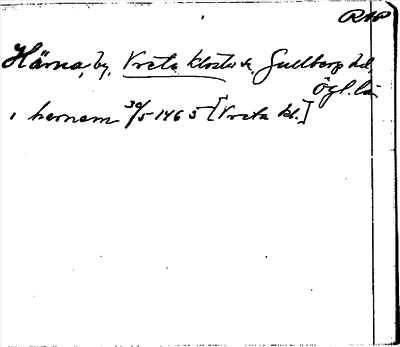 RAP
Härna, by, Vreta klosters, Gullbergs hd,
Ögl. län
i hernem 30/5 1465 [Vreta kl.]